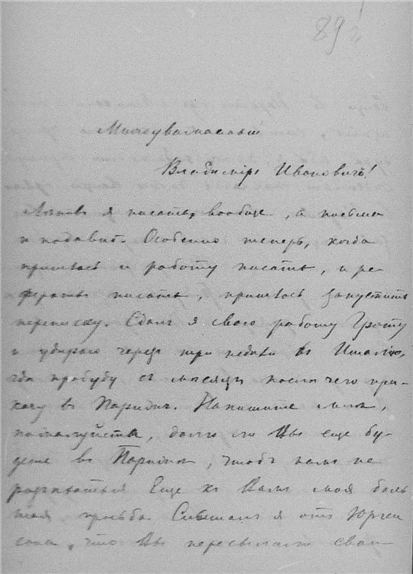 89
Многоуважаемый
Владиміръ Ивановичъ!
я писать вообще, а письма
и подавно. Особенно теперь, когда
пришлось и работу писать, и ре-
фераты писать, пришлось запустить
переписку. Сдалъ я свою работу Гроту
и удираю черезъ три недѣли въ Италію,
гдѣ пробуду съ мѣсяцъ послѣ чего прі-
ѣду въ Парижъ. Напишите мнѣ,
пожалуйста, долго ли Вы еще бу-
дете въ Парижѣ, чтобъ намъ не
разъѣхаться. Еще къ Вамъ моя боль-
шая просьба. Слышалъ я отъ Юрген-
сона, что Вы пересылали свои